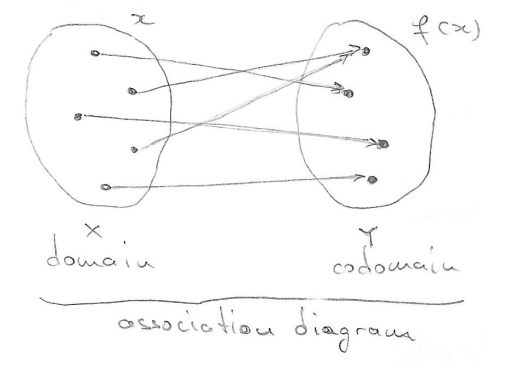 x f(x)
X Y
domain codomain
association diagram